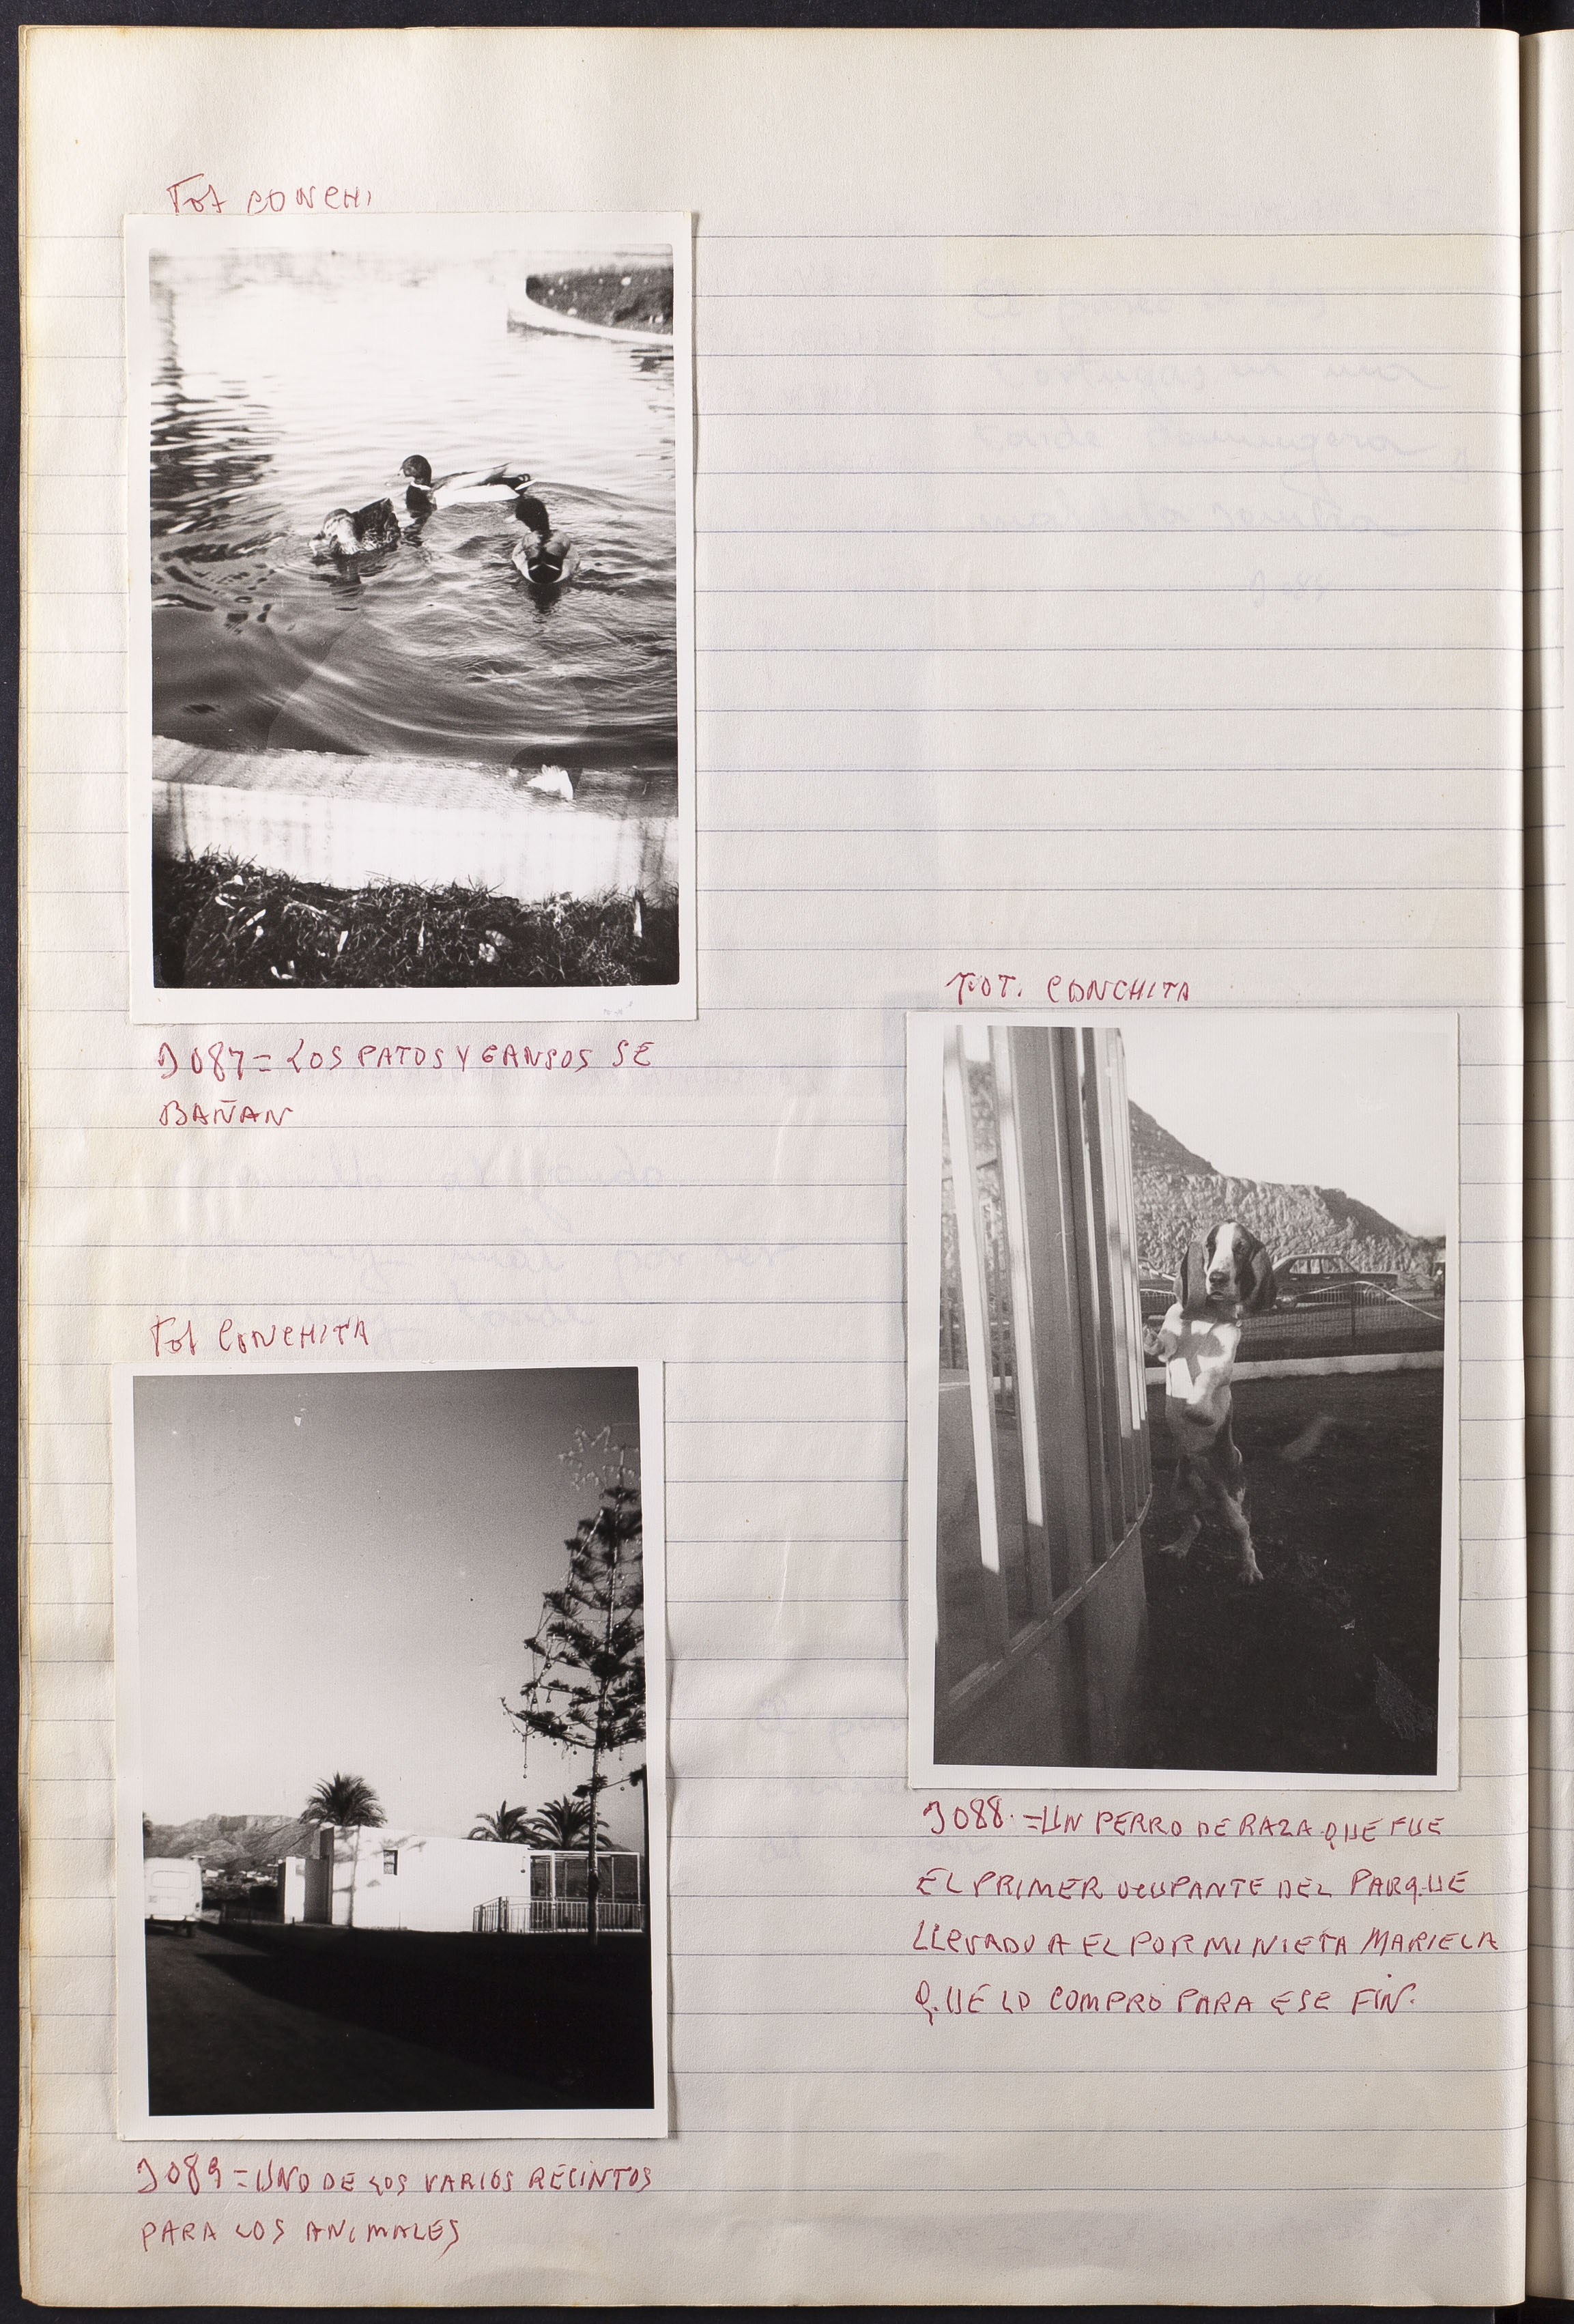 Fot CONCHI
J087= LOS PATOS Y GANSOS SE
BAÑAN
FOT. CONCHITA
J088.=UN PERRO DE RAZA QUE FUE
EL PRIMER OCUPANTE DEL PARQUE
LLEVADO A EL POR MI NIETA MARIELA
QUE LO COMPRÓ PARA ESE FIN.
Fot CONCHITA
J089=UNO DE LOS VARIOS RECINTOS
PARA LOS ANIMALES